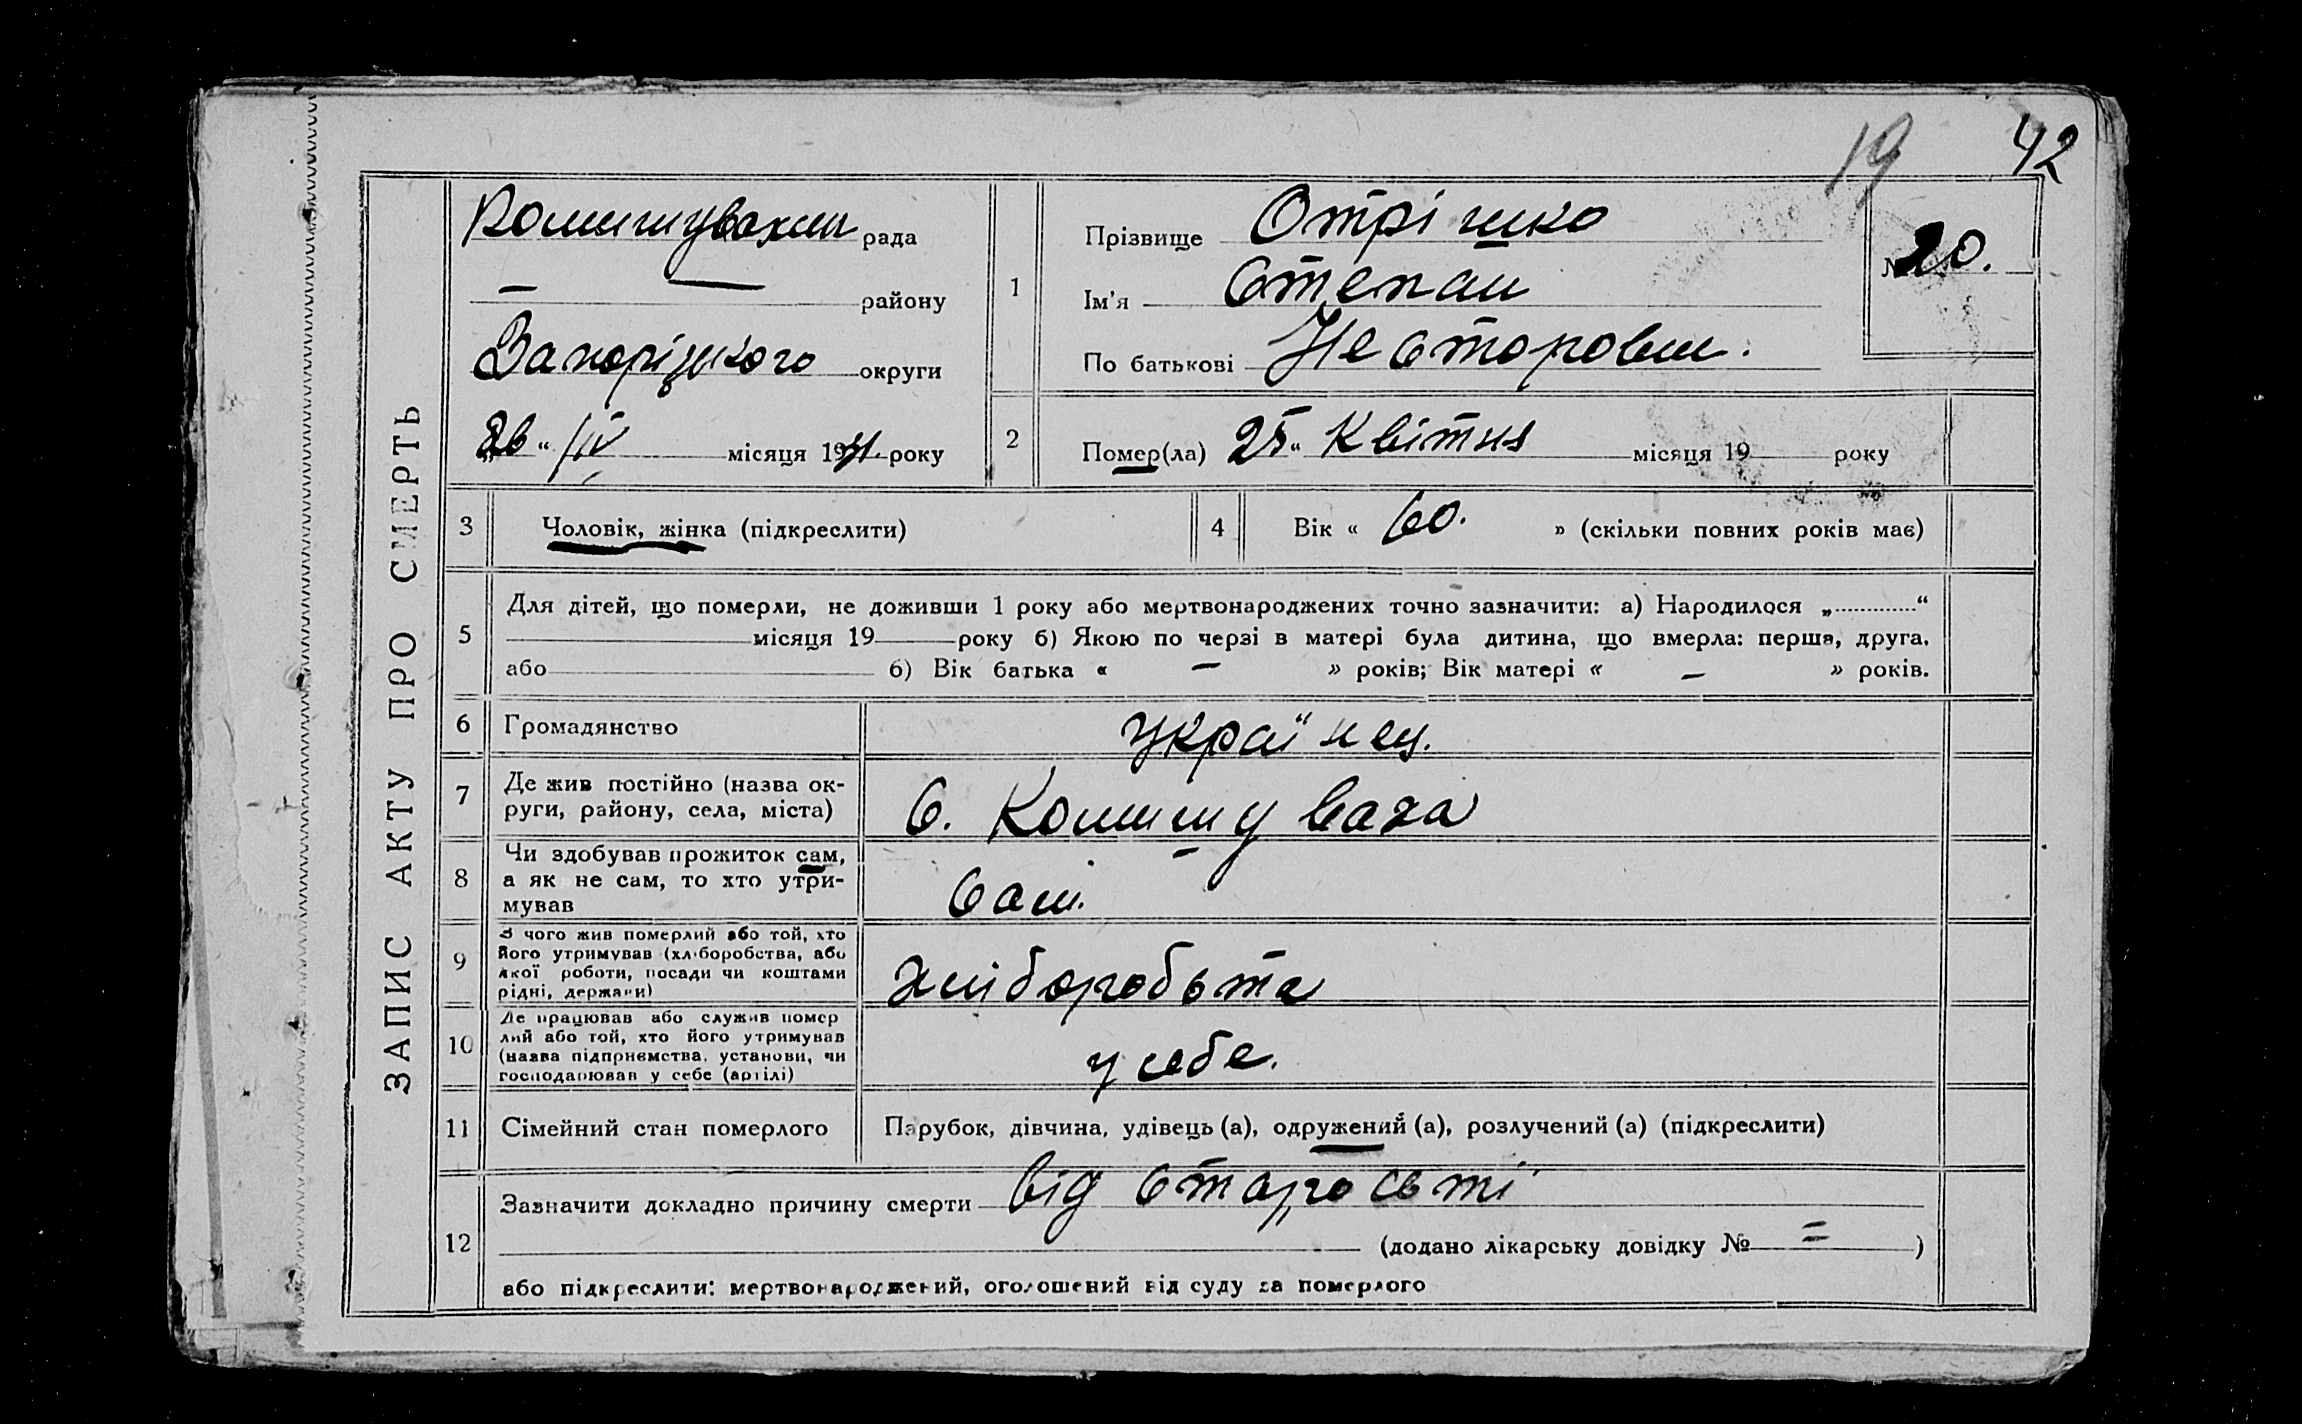 19
42
ЗАПИС АКТУ ПРО СМЕРТЬ
Комишувахськ рада
— — району
Запоріжського округи
„26“ IV місяця 1931 року
1
Прізвище Отрішко
Ім'я Степан
По батькові Несторович.
№ 20.
2
Помер(ла) 25“ Квітня місяця 19 року
3
Чоловік, жінка (підкреслити)
4
Вік « 60. » (скільки повних років має)
5
Для дітей, що померли, не доживши 1 року або мертвонароджених точно зазначити: а) Народилося „ “
місяця 19 року б) Якою по черзі в матері була дитина, що вмерла: перша, друга,
або б) Вік батька « — » років; Вік матері « — » років.
6
Громадянство
українец.
7
Де жив постійно (назва ок-
руги, району, села, міста)
С. Комишуваха
8
Чи здобував прожиток сам,
а як не сам, то хто утри-
мував
Сам.
9
З чого жив померлий або той, хто
його утримував (хліборобства, або
якої роботи, посади чи коштами
рідні, держави)
хліборобство
10
Де працював або служив помер
лий або той, хто його утримував
(назва підприємства, установи, чи
господарював у себе (артілі)
у себе.
11
Сімейний стан померлого
Парубок, дівчина, удівець (а), одружений (а), розлучений (а) (підкреслити)
12
Зазначити докладно причину смерти від старості
(додано лікарську довідку № = )
або підкреслити: мертвонароджений, оголошений від суду за померлого